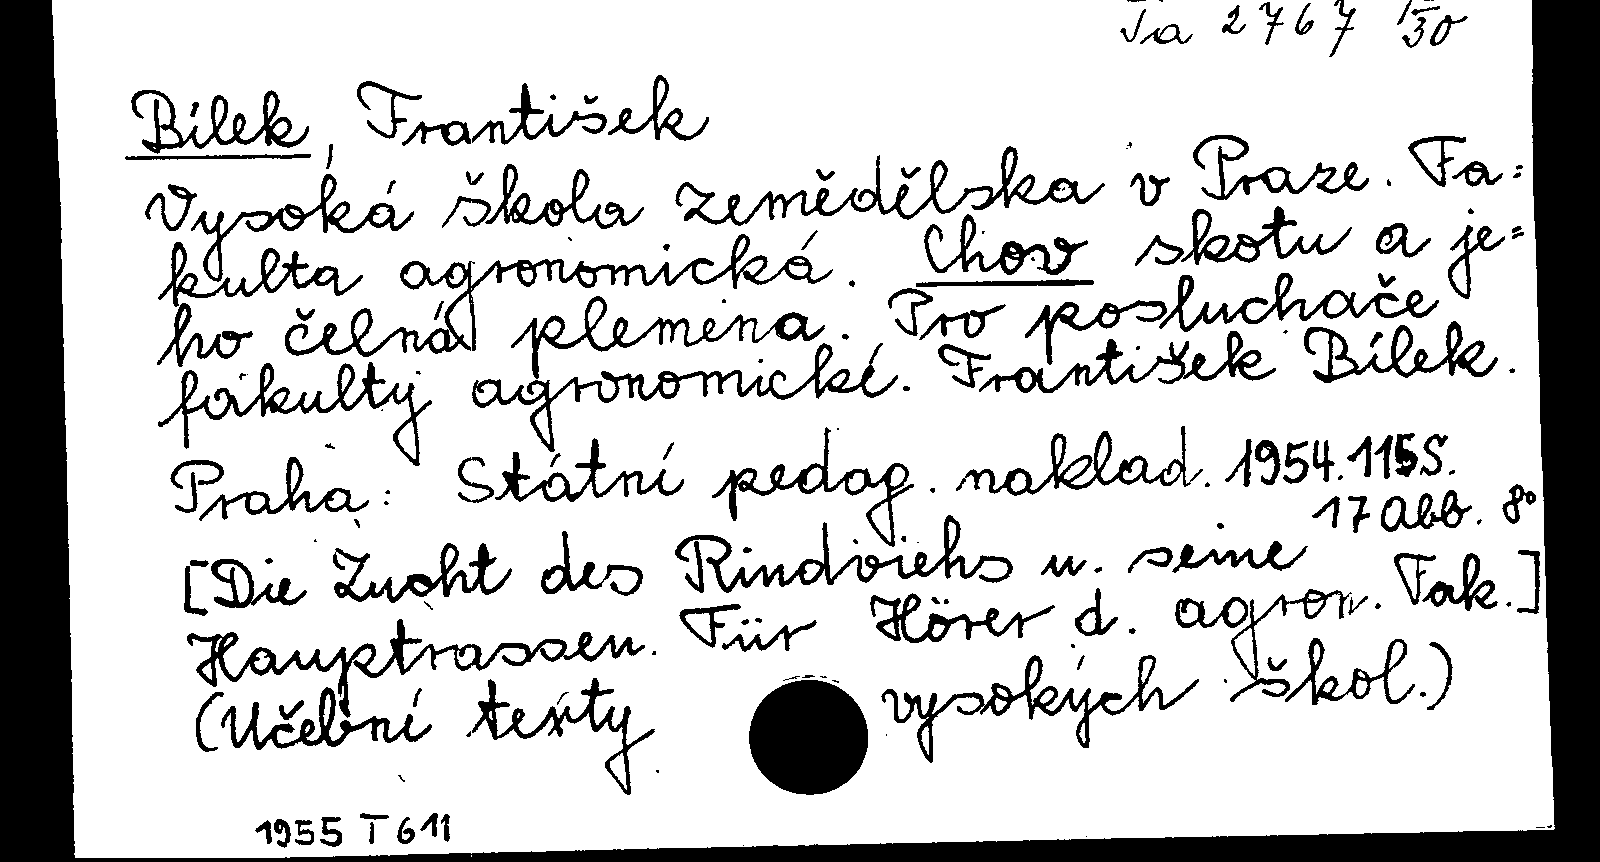 Ta 2767 1/30
Bílek, František
Vysoká škola zemědělska v Praze. Fa=
kulta agronomická. Chov skotu a je=
ho čelná plemena. Pro posluchače
fakulty agronomické. František Bílek.
Praha: Státní pedag. naklad. 1954. 115 S.
17 Abb. 8°
[Die Zucht des Rindviehs u. seine
Hauptrassen. Für Hörer d. agron. Fak.]
(Učební texty vysokých škol.)
1955 T 611